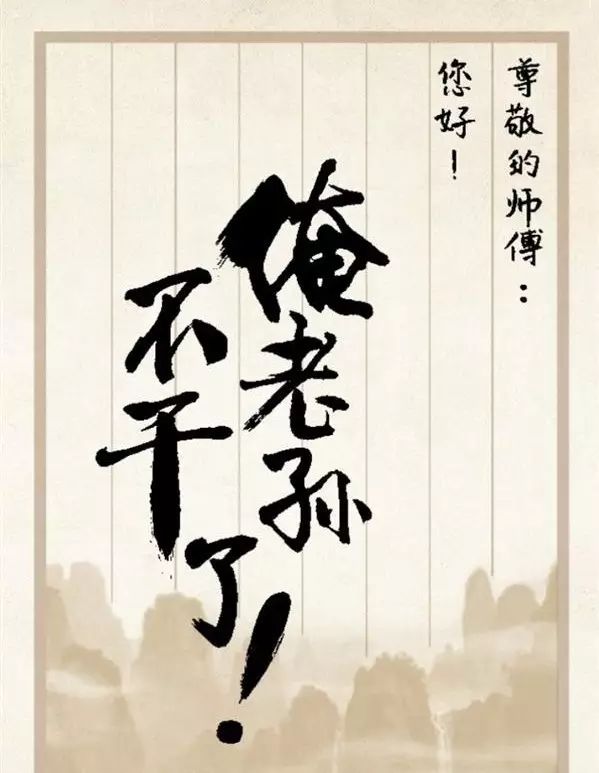 尊敬的师傅：
您好！
俺老孙
不干了！